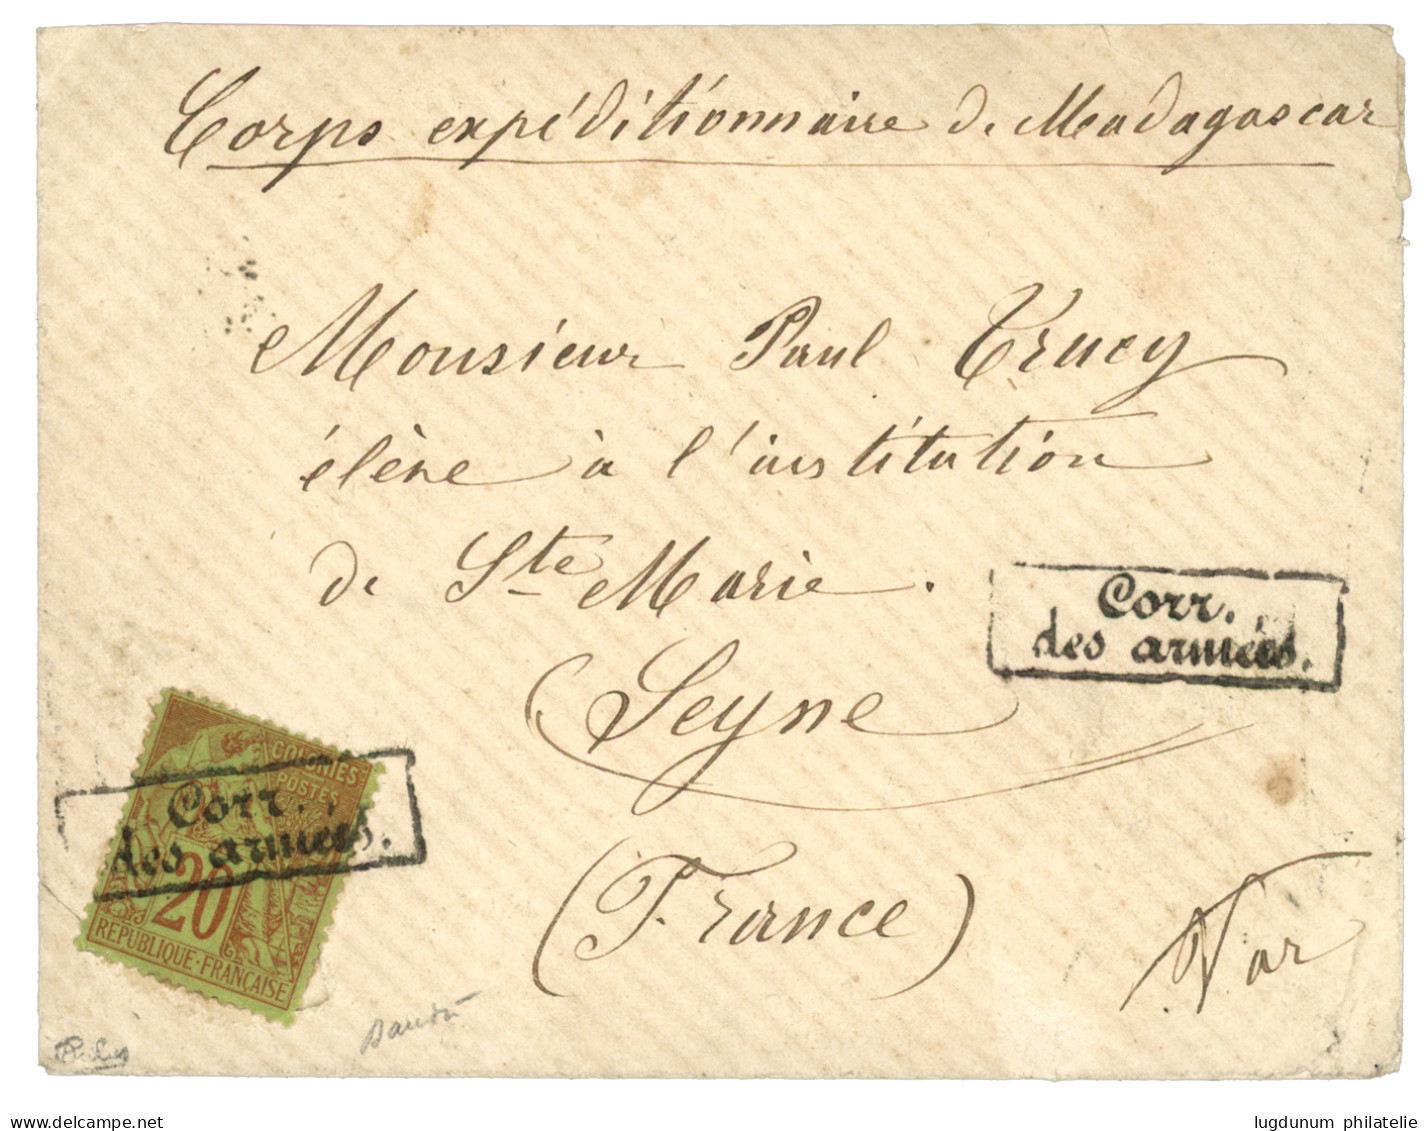 Corps expéditionnaire de Madagascar
Monsieur Paul Trucy
élève à l'institution
de Ste Marie.
Seyne
(France)
Var
Corr.
des armées.
COLONIES
POSTES
Corr.
des armées.
20
REPUBLIQUE·FRANÇAISE
www.delcampe.net
lugdunum philatelie